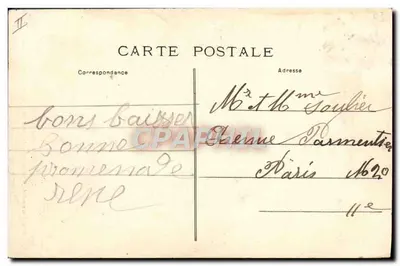 II
CARTE POSTALE
Correspondance
Adresse
bons baisser
Bonne
promenade
rene
Mr et Mme Soulier
Avenue Parmentier
Paris No 20
11e